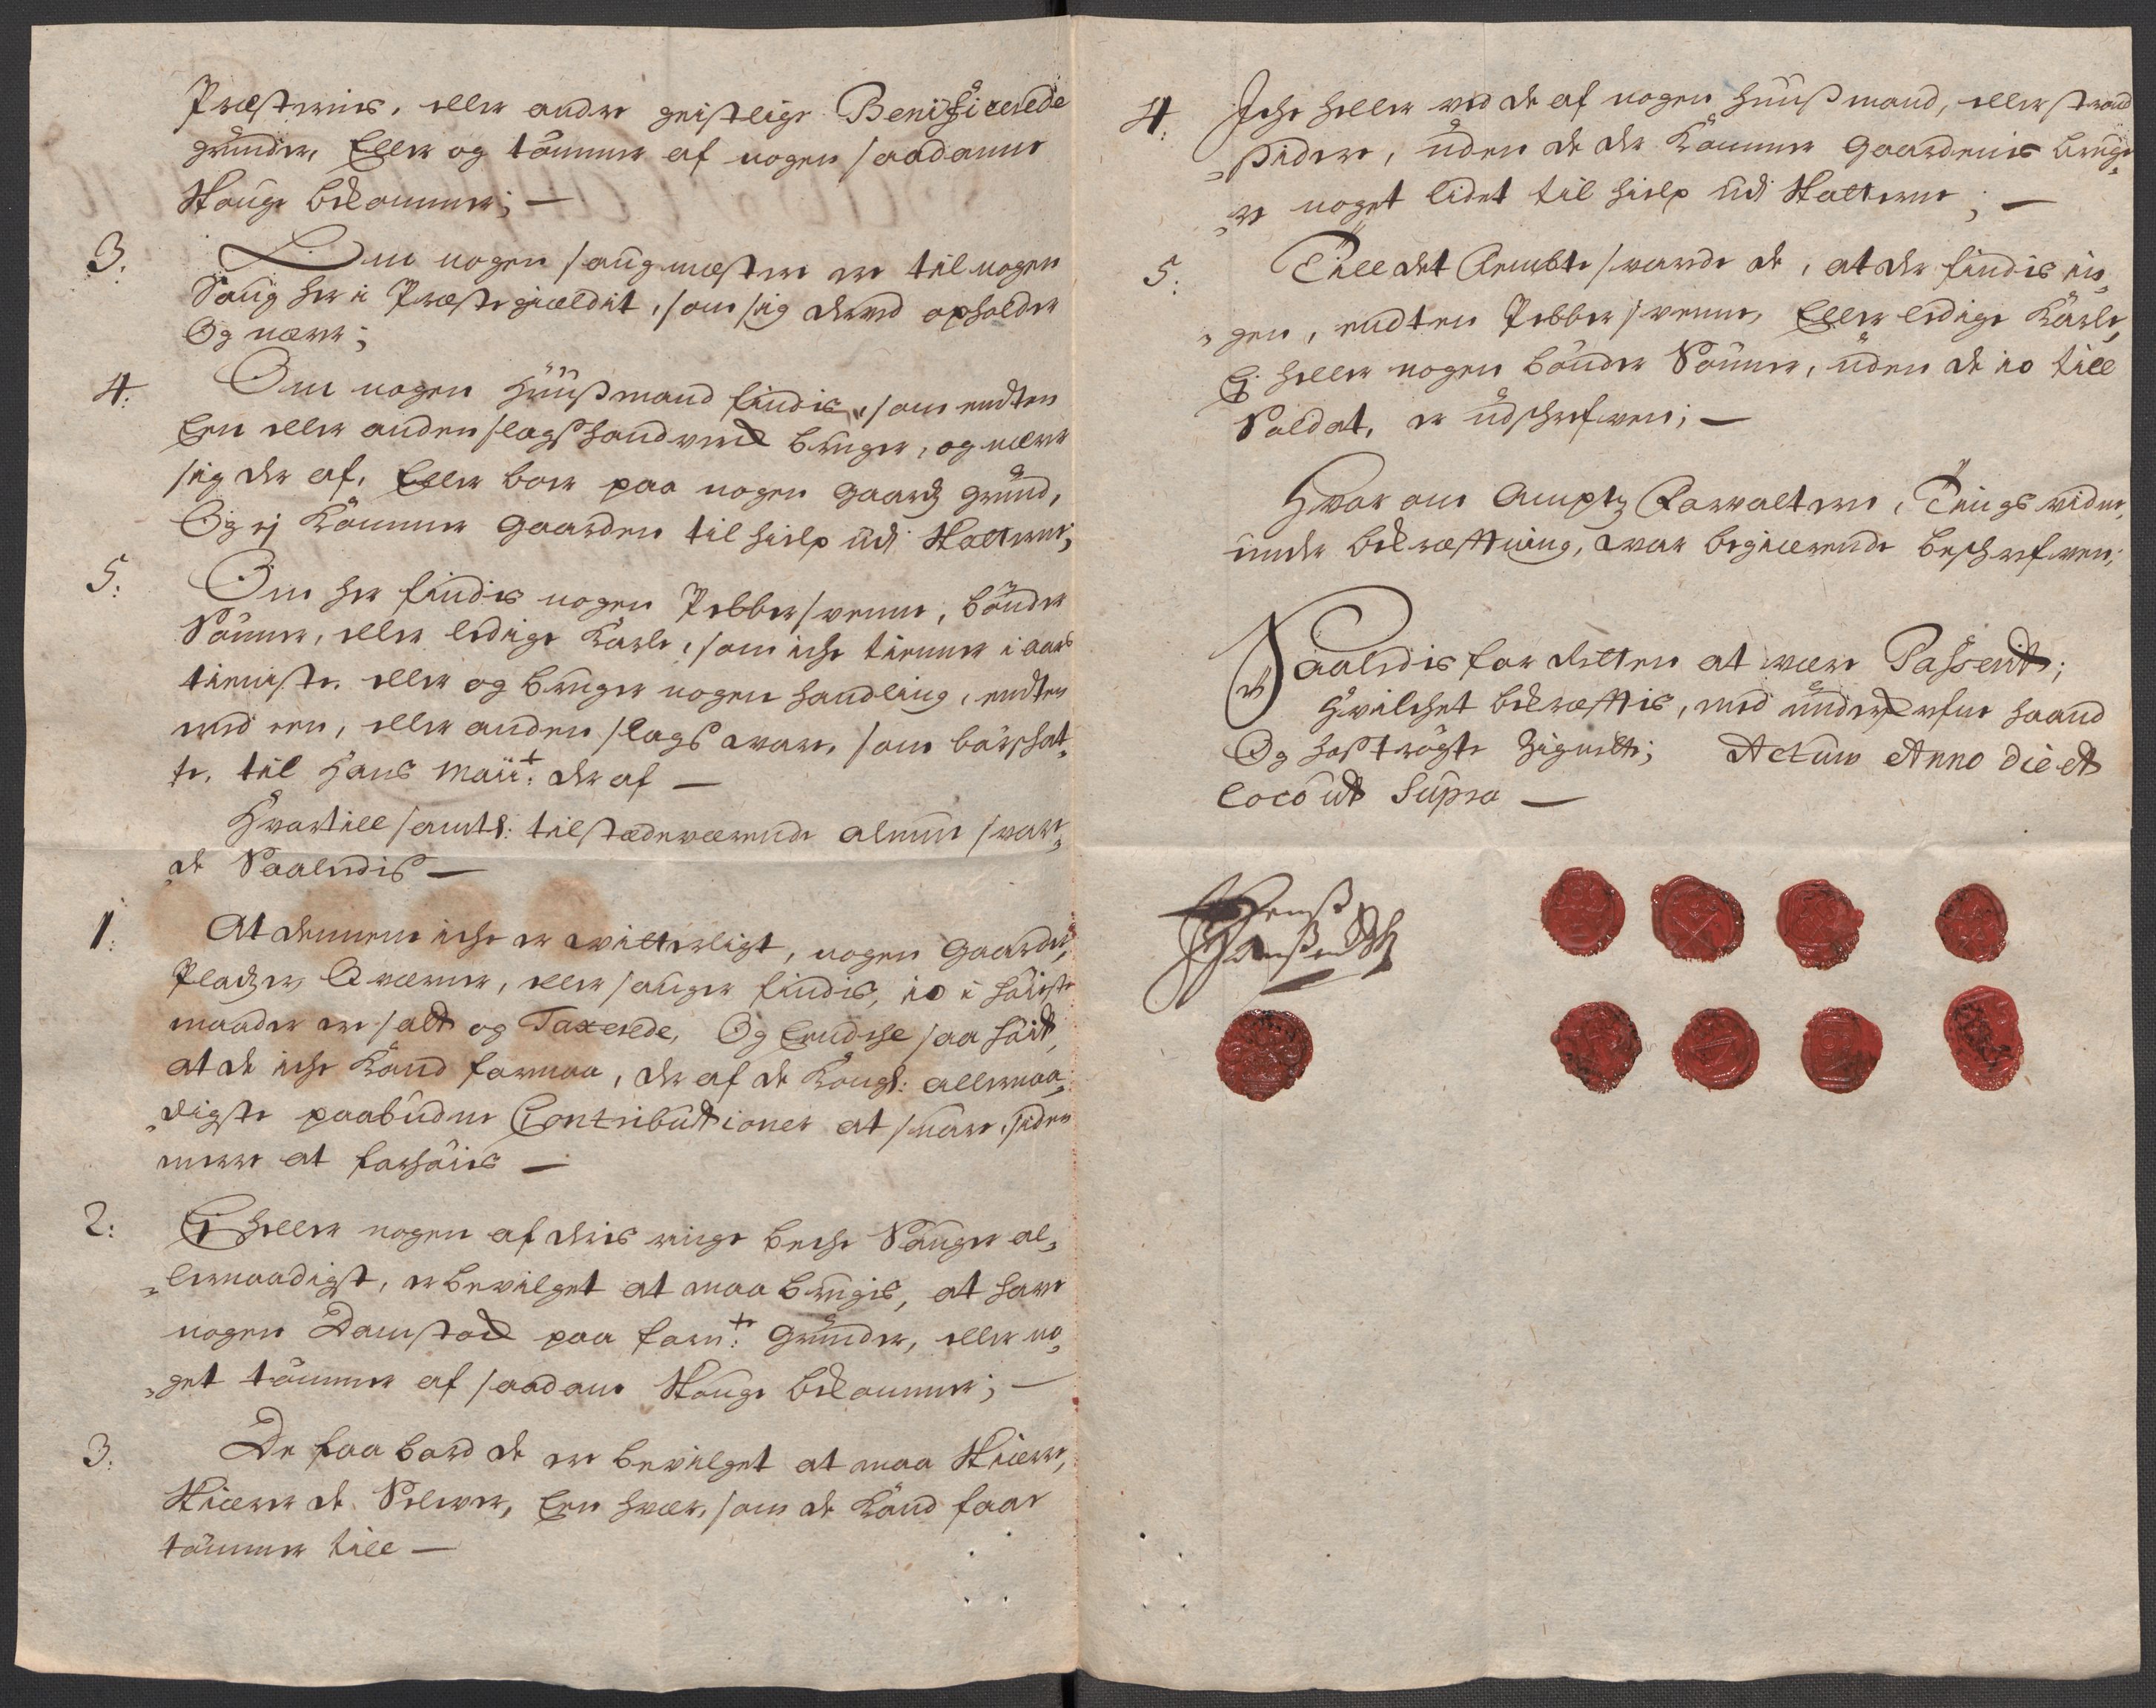 Præsternis, eller andre geistlige Benificerede
grunder, Eller og tømmer af nogen saadanne
Skouge bekommer; —
3. Om nogen saugmæstere ere til nogen
Saug her i Præstegieldit, som sig derved opholder
Og nærer;
4. Om nogen Huusmand findis, som endten
Een eller anden slags handverck bruger, og nærer
sig der af, Eller boer paa nogen gaards grund,
Og ej kommer gaarden til hielp udi Skatterne;
5. Om her findis nogen Pebbersvenne, bønder
Sønner, eller ledige Karle, som iche tienner i aars
tieniste, eller og bruger nogen handling, endten
med een, eller anden slags ware, som bør schat„
te, til Hans Maÿt: der af —
Hvortill samtl: tilstædeværende almue svare„
„de Saaledis —
1: At dennem iche er witterligt, nogen gaarder,
Pladzer, Qverner, eller sauger findis, io i høieste
maader ere satt og Taxerede, Og Eendche saa høit,
at de iche kand formaa, der af de Kongl: allernaa„
„digste paabudne Contributioner at svare, siden
meere at forhøies —
2: Ei heller nogen af deris ringe beche Sauger al„
„lernaadigst, er bevilget at maa brugis, at have
nogen Damstock paa forn:te Grunder, eller no„
„get tømmer af saadane Skouge bekommer; —
3: De faa bord de ere bevilget at maa Skiere,
Skierer de Selver, Een hver, som de kand faae
tømmer till —
4: Iche heller ved de af nogen huusmand, eller strand
„sidere, uden de der kommer gaardenis bruge„
„re noget lidet til hielp udi Skatterne; —
5: Till det Femte svarede de, at der findis in„
„gen, endten Pebbersvenne, Eller ledige Karle,
Ej heller nogen bønder Sønner, uden de io till
Soldat, er udschrefven; —
Hvor om Ampts Forvalteren, Tings vidne,
under bekræftning, war begierende beschrefven;
Saaledis for Retten at være Passerit;
Hvilchet bekræftis, med underschrefne haand
Og hoströgte Zignette; Actum Anno die et
loco ut Supra —
Jens
Hansen